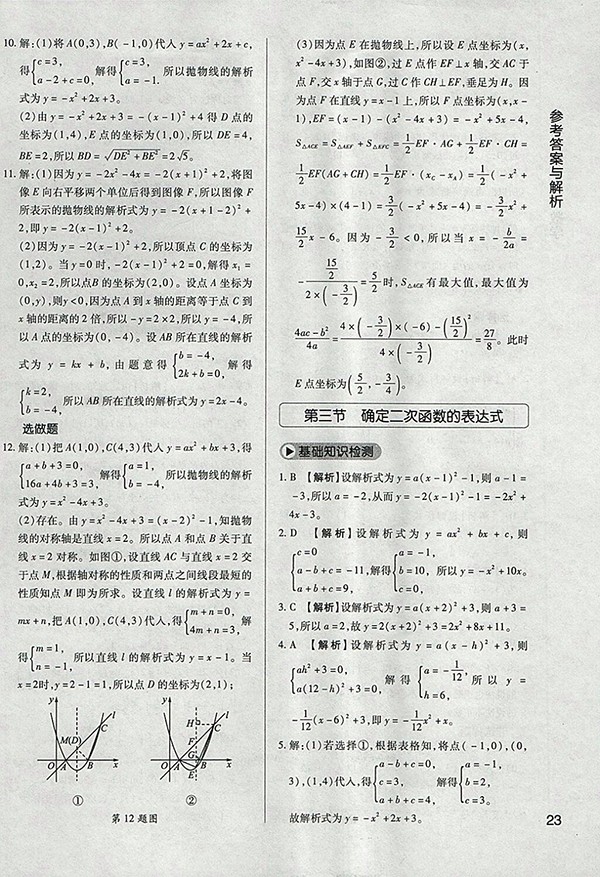 10. 解:(1)将A(0,3),B(-1,0)代入y=ax²+2x+c,
得{c=3, a-2+c=0, 解得{c=3, a=-1. 所以抛物线的解析
式为y=-x²+2x+3.
(2)由y=-x²+2x+3=-(x-1)²+4得D点的
坐标为(1,4),E点的坐标为(1,0),所以DE=4,
BE=2,所以BD=√(DE²+BE²)=2√5.
11. 解:(1)因为y=-2x²-4x=-2(x+1)²+2,将图
像E向右平移两个单位后得到图像F,所以图像F
所表示的抛物线的解析式为y=-2(x+1-2)²+
2,即y=-2(x-1)²+2.
(2)因为y=-2(x-1)²+2,所以顶点C的坐标为
(1,2). 当y=0时,-2(x-1)²+2=0,解得x₁=
0,x₂=2,所以点B的坐标为(2,0). 设点A坐标为
(0,y),则y<0,因为点A到x轴的距离等于点C到
x轴的距离的2倍,所以-y=2×2,所以y=-4,所
以A点的坐标为(0,-4). 设AB所在直线的解析
式为y=kx+b,由题意得{b=-4, 2k+b=0, 解得
{k=2, b=-4, 所以AB所在直线的解析式为y=2x-4.
选做题
12. 解:(1)把A(1,0),C(4,3)代入y=ax²+bx+3,得
{a+b+3=0, 16a+4b+3=3, 解得{a=1, b=-4, 所以抛物线的解析
式为y=x²-4x+3.
(2)存在。由y=x²-4x+3=(x-2)²-1,知抛物
线的对称轴是直线x=2. 所以点A和点B关于直
线x=2对称。如图①,设直线AC与直线x=2交
于点M,根据轴对称的性质和两点之间线段最短的
性质知点M即为所求。设直线l的解析式为y=
mx+n,把A(1,0),C(4,3)代入,得{m+n=0, 4m+n=3, 解
得{m=1, n=-1, 所以直线l的解析式为y=x-1. 当
x=2时,y=2-1=1,所以点D的坐标为(2,1);
y l C M(D) O A B x
①
y l H C F G O A B E x
②
第12题图
(3)因为点E在抛物线上,所以设E点坐标为(x,
x²-4x+3),如图②,过E点作EF⊥x轴,交AC于
点F,交x轴于点G,过C作CH⊥EF,垂足为H。因
为点F在直线y=x-1上,所以F点坐标为(x,x-
1),EF=(x-1)-(x²-4x+3)=-x²+5x-4,
S△ACE=S△AEF+S△EFC=1/2EF·AG+1/2EF·CH=
1/2EF(AG+CH)=1/2EF·(x_C-x_A)=1/2(-x²+
5x-4)×(4-1)=3/2(-x²+5x-4)=-3/2x²+
15/2x-6. 因为-3/2<0,所以当x=-b/2a=
-(15/2)/(2×(-3/2))=5/2时,S△ACE有最大值,最大值为
(4ac-b²)/4a=(4×(-3/2)×(-6)-(15/2)²)/(4×(-3/2))=27/8. 此时
E点坐标为(5/2,-3/4).
第三节 确定二次函数的表达式
基础知识检测
1. B 【解析】设解析式为y=a(x-1)²-1,则a-1=
-3,所以a=-2,从而y=-2(x-1)²-1=-2x²+
4x-3.
2. D 【解析】设解析式为y=ax²+bx+c,则
{c=0 a-b+c=-11, a+b+c=9, 解得{a=-1, b=10, c=0. 所以y=-x²+10x.
3. C 【解析】设解析式为y=a(x+2)²+3,则a+3=
5,所以a=2,故y=2(x+2)²+3=2x²+8x+11.
4. A 【解析】设解析式为y=a(x-h)²+3,则
{ah²+3=0, a(12-h)²+3=0, 解得{a=-1/12, h=6, 所以y=
-1/12(x-6)²+3,即y=-1/12x²+x.
5. 解:(1)若选择①,根据表格知,将点(-1,0),(0,
3),(1,4)代入,得{a-b+c=0, c=3, a+b+c=4, 解得{a=-1, b=2, c=3.
故解析式为y=-x²+2x+3。
参考答案与解析
23